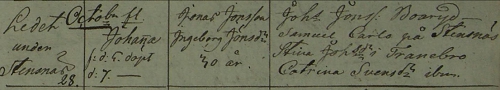 Ledet
under
Stensnäs
28.
Octobr fl
Johaña
f: d. 5. döpt
d: 7. —
Jonas Jonsson
Ingeborg Jonsdr
40 år.
Joh: Jons: Boaryd
Samuel Carls på Stensnäs
Stina Johsdr i Franebro
Catrina Svensdr ibm.